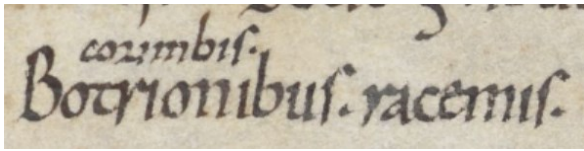 corimbis.
Botrionibus. racemis.